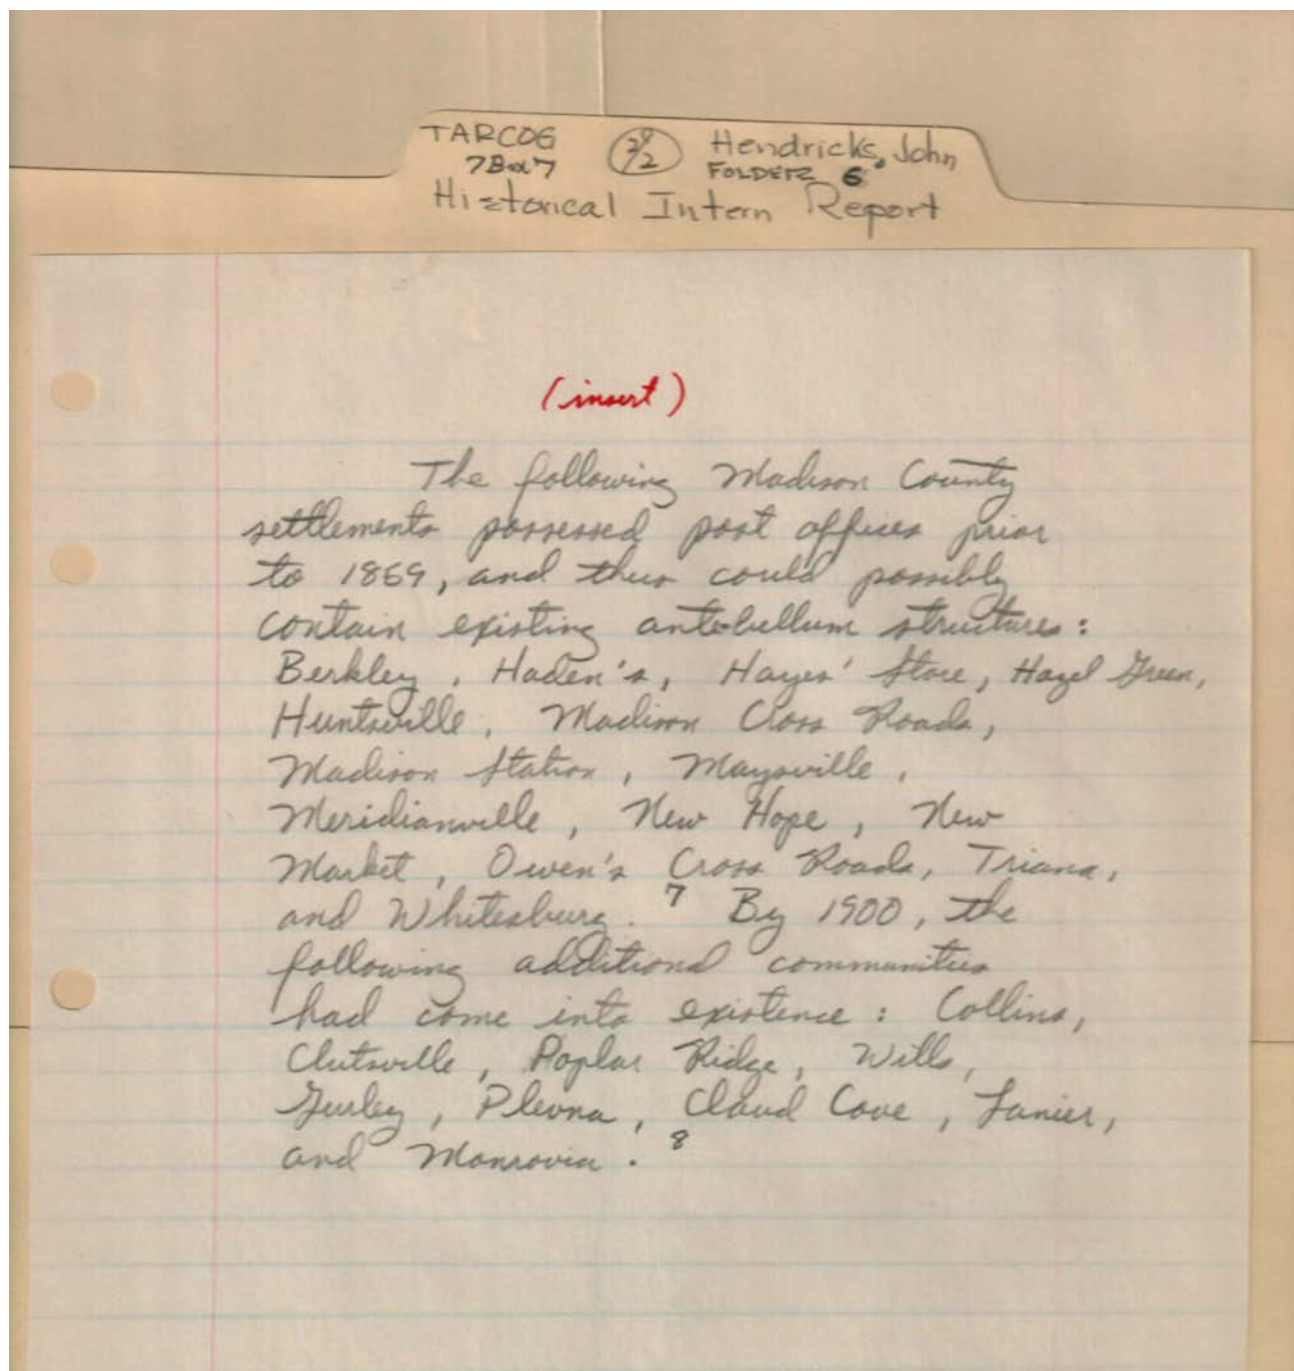 TARCOG
7Box7
2/2
Hendricks, John
FOLDER 6
Historical Intern Report
(insert)
The following Madison County
settlements possessed post offices prior
to 1869, and thus could possibly
contain existing antebellum structures:
Berkley, Haden's, Hayes' Store, Hazel Green,
Huntsville, Madison Cross Roads,
Madison Station, Maysville,
Meridianville, New Hope, New
Market, Owen's Cross Roads, Triana,
and Whitesburg. 7 By 1900, the
following additional communities
had come into existence: Collins,
Clutsville, Poplar Ridge, Wills,
Gurley, Plevna, Claud Cove, Lanier,
and Monrovia. 8